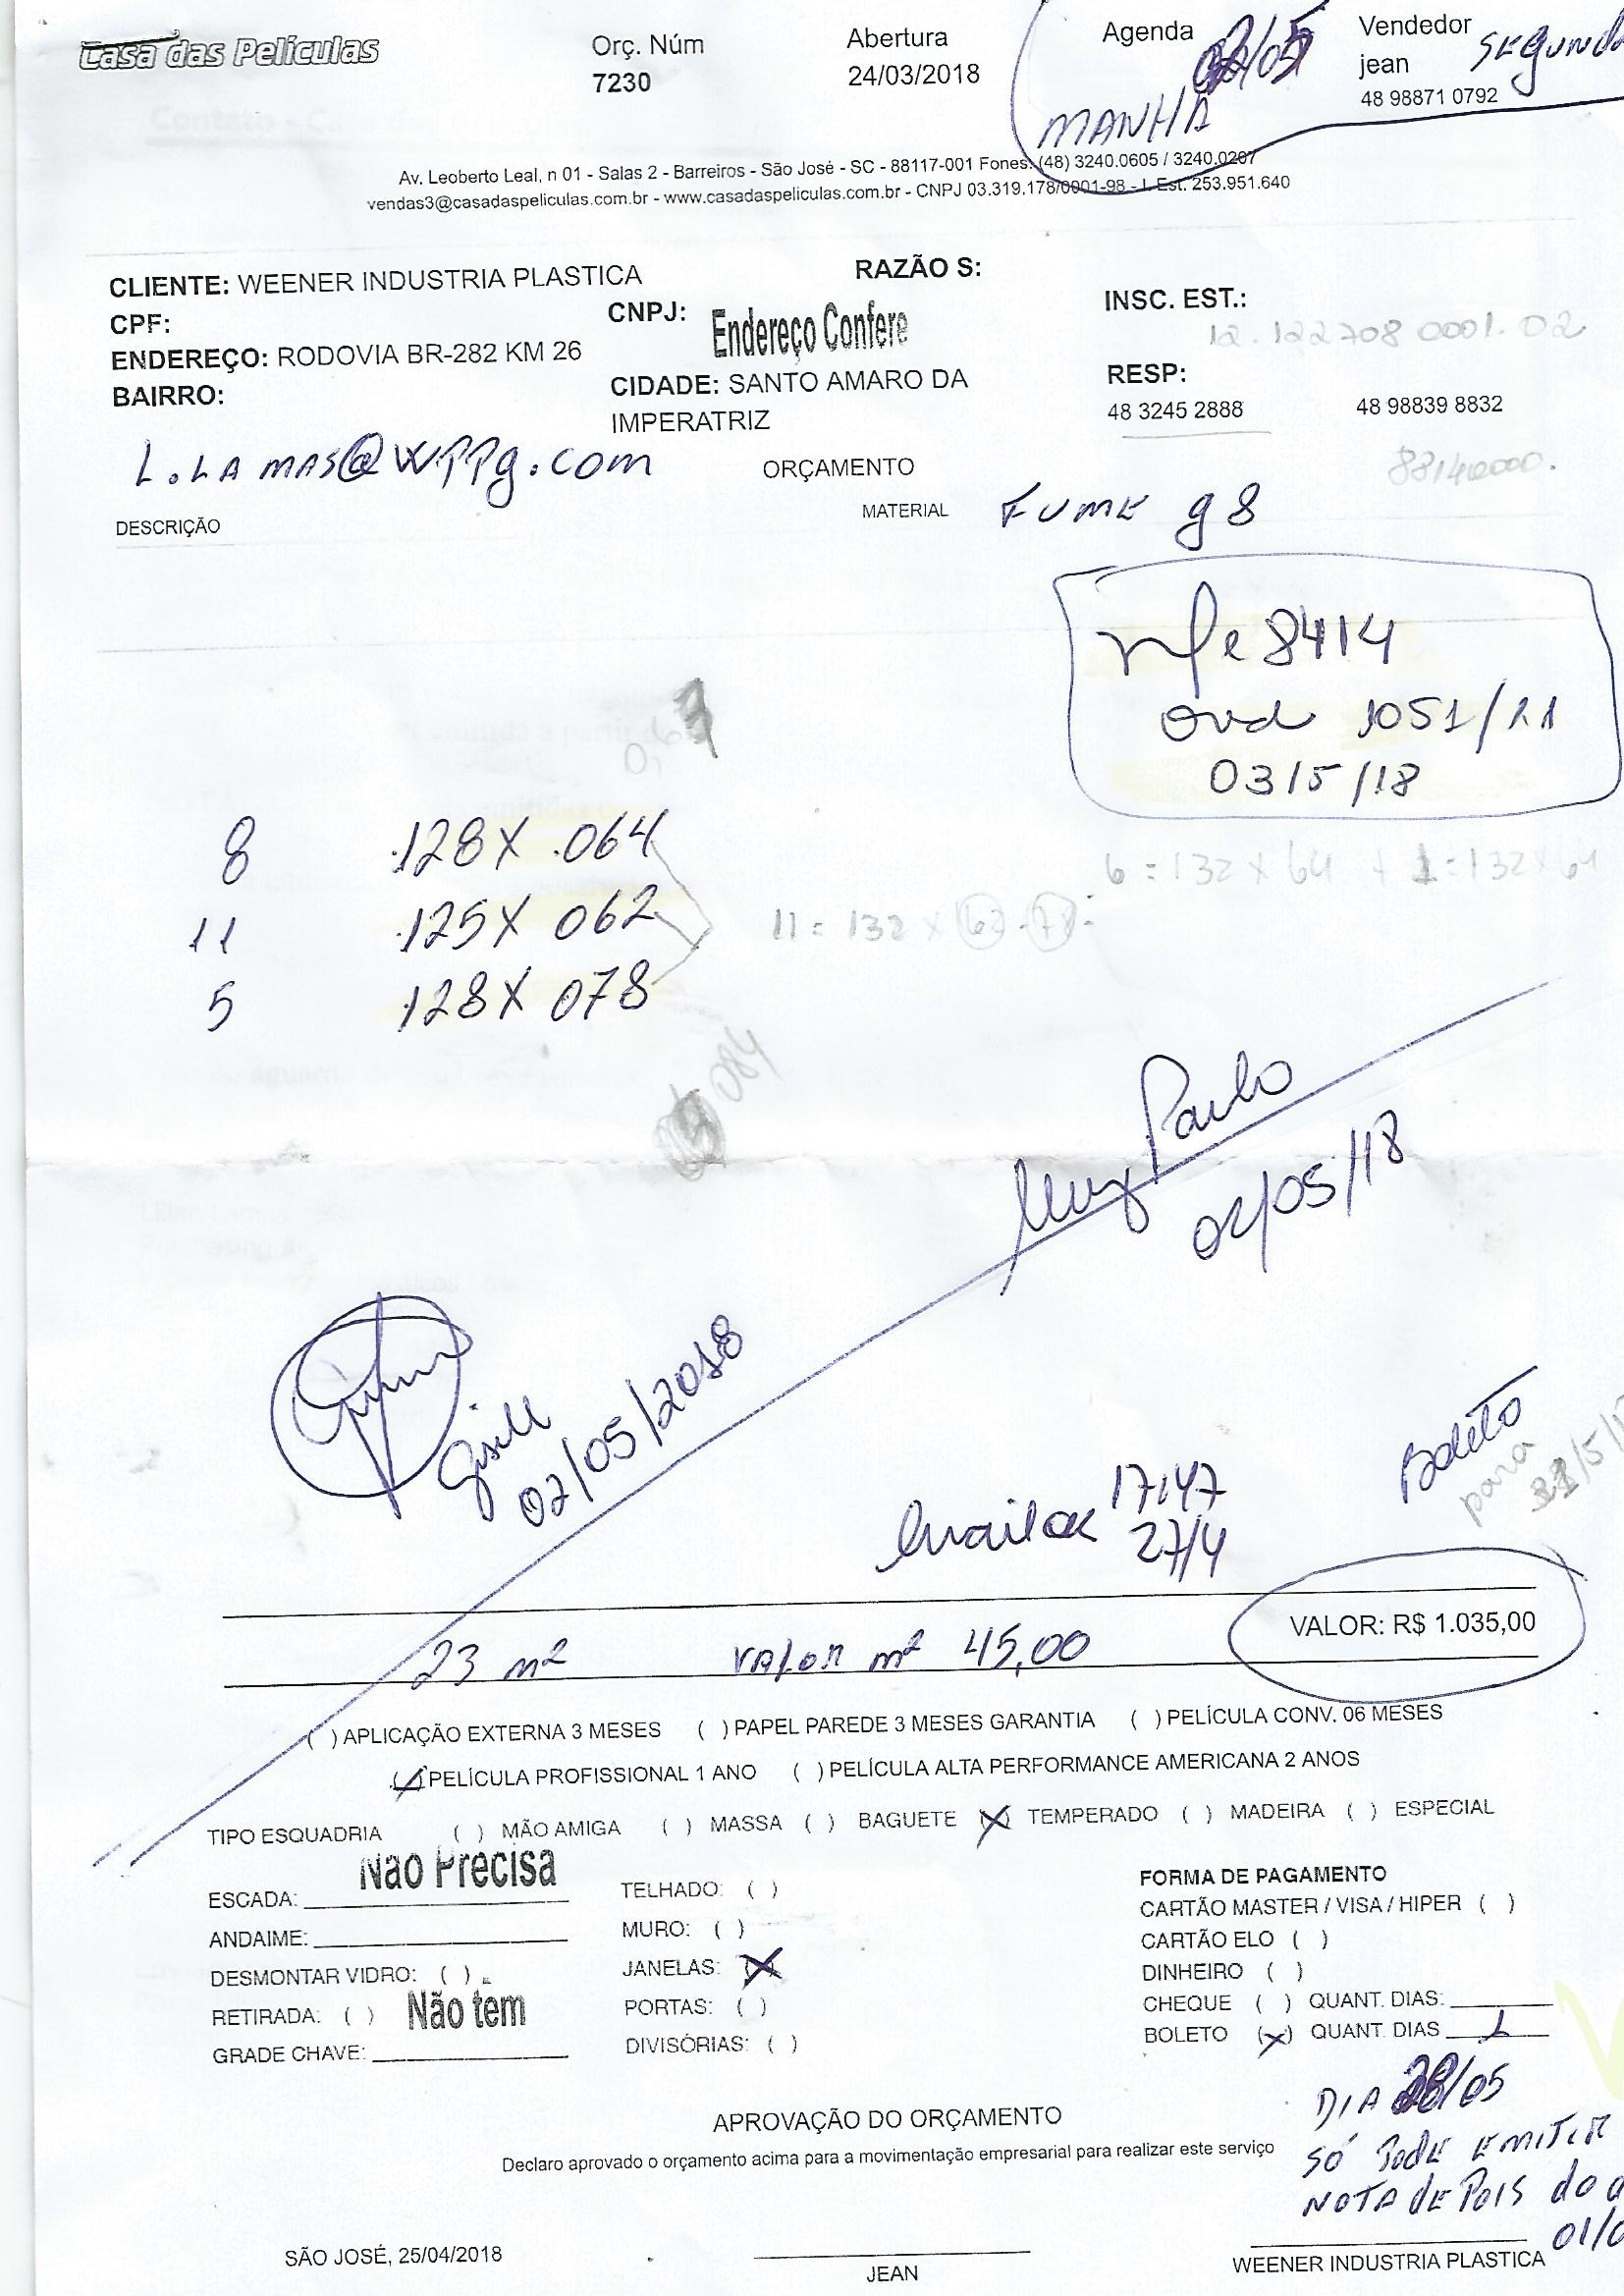 Casa das Películas
Orç. Núm
7230
Abertura
24/03/2018
Agenda
MANHÃ
Vendedor
jean
48 98871 0792
Av. Leoberto Leal, n 01 - Salas 2 - Barreiros - São José - SC - 88117-001 Fones: (48) 3240.0605 / 3240.0207
vendas3@casadaspeliculas.com.br - www.casadaspeliculas.com.br - CNPJ 03.319.178/0001-98 - I. Est. 253.951.640
CLIENTE: WEENER INDUSTRIA PLASTICA
RAZÃO S:
CPF:
CNPJ: Endereço Confere
INSC. EST.:
12.122708 0001.02
ENDEREÇO: RODOVIA BR-282 KM 26
BAIRRO:
CIDADE: SANTO AMARO DA
IMPERATRIZ
RESP:
48 3245 2888
48 98839 8832
L.LAMAS@WPPg.com
ORÇAMENTO
DESCRIÇÃO
MATERIAL FUME g8
nfe 8414
ord 1051/11
03/5/18
8 .128X .064
11 .125X 062
5 .128X 078
6 = 132 x 64 + 1 = 132 x 64
11 = 132 x 62 . 78 =
084
Paulo
02/05/18
02/05/2018
Boleto
para
Email ok 17:47
27/4
23 m² VALOR m² 45,00
VALOR: R$ 1.035,00
( ) APLICAÇÃO EXTERNA 3 MESES ( ) PAPEL PAREDE 3 MESES GARANTIA ( ) PELÍCULA CONV. 06 MESES
( ) PELÍCULA PROFISSIONAL 1 ANO ( ) PELÍCULA ALTA PERFORMANCE AMERICANA 2 ANOS
TIPO ESQUADRIA ( ) MÃO AMIGA ( ) MASSA ( ) BAGUETE (X) TEMPERADO ( ) MADEIRA ( ) ESPECIAL
Não Precisa
ESCADA:
ANDAIME:
DESMONTAR VIDRO: ( )
RETIRADA: ( ) Não tem
GRADE CHAVE:
TELHADO: ( )
MURO: ( )
JANELAS: (X)
PORTAS: ( )
DIVISÓRIAS: ( )
FORMA DE PAGAMENTO
CARTÃO MASTER / VISA / HIPER ( )
CARTÃO ELO ( )
DINHEIRO ( )
CHEQUE ( ) QUANT. DIAS:
BOLETO (X) QUANT. DIAS 1
DIA 28/05
SÓ PODE EMITIR
NOTA dEPOIS do
APROVAÇÃO DO ORÇAMENTO
Declaro aprovado o orçamento acima para a movimentação empresarial para realizar este serviço
SÃO JOSÉ, 25/04/2018
JEAN
WEENER INDUSTRIA PLASTICA